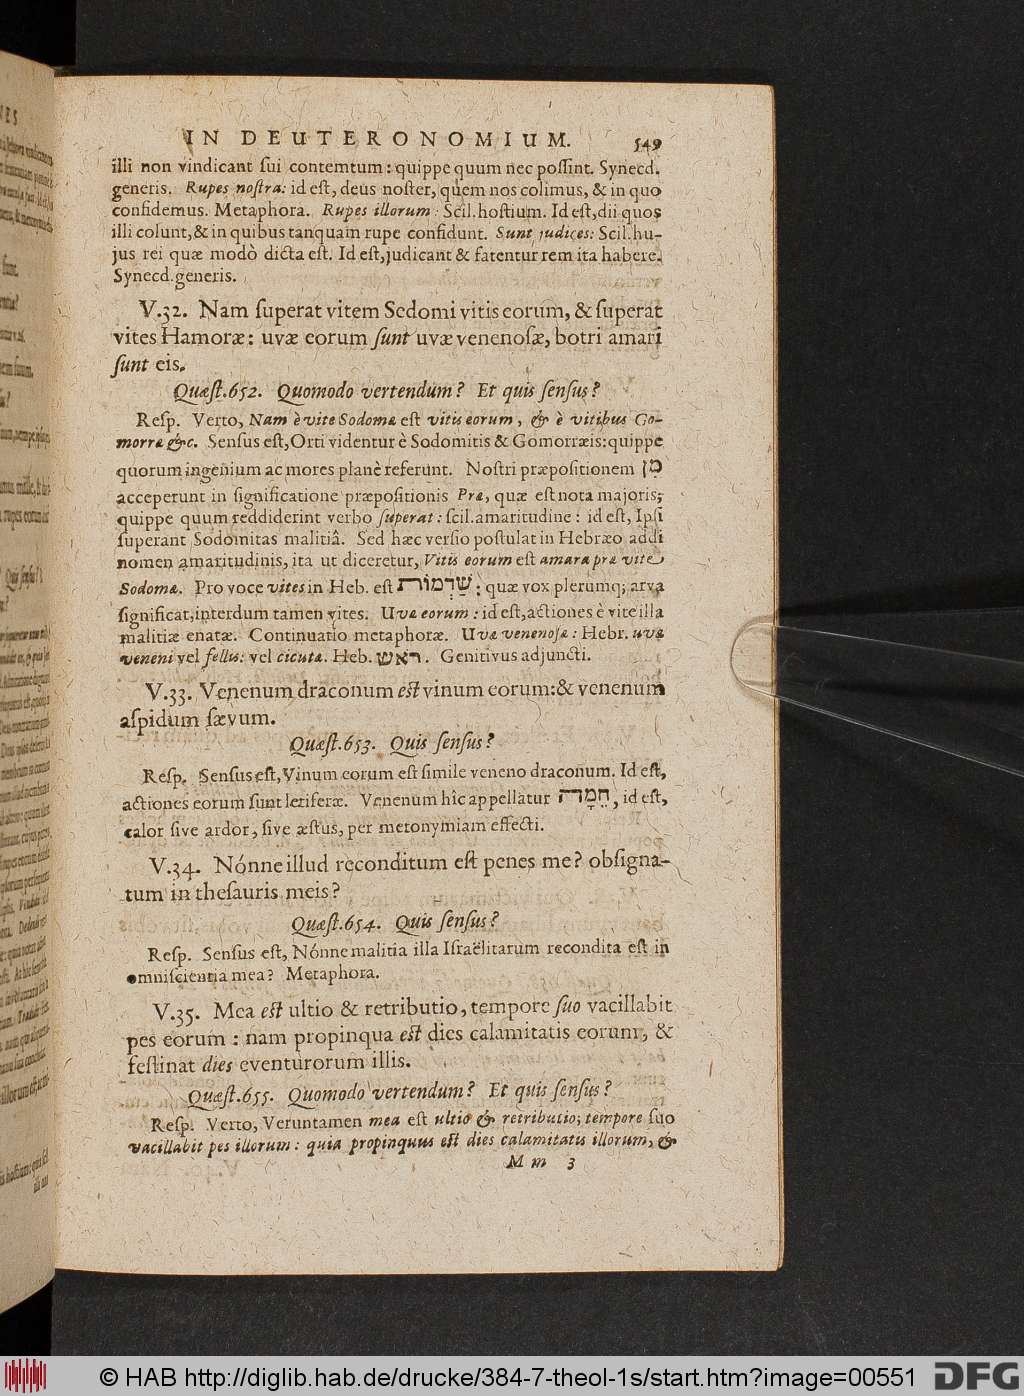 IN DEUTERONOMIUM. 549
illi non vindicant sui contemtum: quippe quum nec possint. Synecd.
generis. Rupes nostra: id est, deus noster, quem nos colimus, & in quo
confidemus. Metaphora. Rupes illorum: Scil. hostium. Id est, dii quos
illi colunt, & in quibus tanquam rupe confidunt. Sunt judices: Scil. hu-
jus rei quæ modò dicta est. Id est, judicant & fatentur rem ita habere.
Synecd. generis.
V.32. Nam superat vitem Sedomi vitis eorum, & superat
vites Hamoræ: uvæ eorum sunt uvæ venenosæ, botri amari
sunt eis.
Quæst.652. Quomodo vertendum? Et quis sensus?
Resp. Verto, Nam è vite Sodomæ est vitis eorum, & è vitibus Go-
morræ &c. Sensus est, Orti videntur è Sodomitis & Gomorræis: quippe
quorum ingenium ac mores planè referunt. Nostri præpositionem מִן
acceperunt in significatione præpositionis Præ, quæ est nota majoris;
quippe quum reddiderint verbo superat: scil. amaritudine: id est, Ipsi
superant Sodomitas malitiâ. Sed hæc versio postulat in Hebræo addi
nomen amaritudinis, ita ut diceretur, Vitis eorum est amara præ vite
Sodomæ. Pro voce vites in Heb. est שַׁדְמוֹת: quæ vox plerumq; arva
significat, interdum tamen vites. Uvæ eorum: id est, actiones è vite illa
malitiæ enatæ. Continuatio metaphoræ. Uvæ venenosæ: Hebr. uvæ
veneni vel fellis: vel cicutæ. Heb. ראש. Genitivus adjuncti.
V.33. Venenum draconum est vinum eorum: & venenum
aspidum sævum.
Quæst.653. Quis sensus?
Resp. Sensus est, Vinum eorum est simile veneno draconum. Id est,
actiones eorum sunt letiferæ. Venenum hîc appellatur חֵמָה, id est,
calor sive ardor, sive æstus, per metonymiam effecti.
V.34. Nónne illud reconditum est penes me? obsigna-
tum in thesauris meis?
Quæst.654. Quis sensus?
Resp. Sensus est, Nónne malitia illa Israëlitarum recondita est in
omniscientia mea? Metaphora.
V.35. Mea est ultio & retributio, tempore suo vacillabit
pes eorum: nam propinqua est dies calamitatis eorum, &
festinat dies eventurorum illis.
Quæst.655. Quomodo vertendum? Et quis sensus?
Resp. Verto, Veruntamen mea est ultio & retributio; tempore suo
vacillabit pes illorum: quia propinquus est dies calamitatis illorum, &
M m 3
© HAB http://diglib.hab.de/drucke/384-7-theol-1s/start.htm?image=00551
DFG